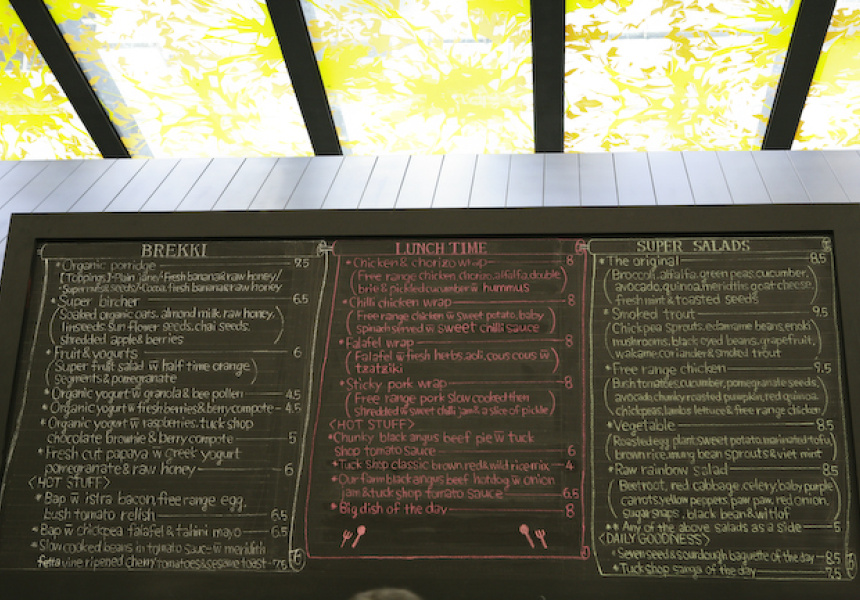 BREKKI
* Organic porridge 9.5
[Toppings]-Plain Jane/Fresh banana & raw honey/
Supermust seeds/Cocoa, fresh banana & raw honey
* Super bircher 6.5
(Soaked organic oats, almond milk, raw honey,
linseeds, sun flower seeds, chai seeds,
shredded apple & berries)
* Fruit & yogurts 6
(Super fruit salad w half time orange
segments & pomegranate)
* Organic yogurt w granola & bee pollen - 4.5
* Organic yogurt w fresh berries & berry compote - 4.5
* Organic yogurt w raspberries, tuck shop
chocolate brownie & berry compote 5
* Fresh cut papaya w greek yogurt
pomegranate & raw honey 6
<HOT STUFF>
* Bap w istra bacon, free range egg,
bush tomato relish 6.5
* Bap w chickpea falafel & tahini mayo 6.5
* Slow cooked beans in tomato sauce w meridith
fetta vine ripened cherry tomatoes & sesame toast - 7.5
LUNCH TIME
* Chicken & chorizo wrap 8
(Free range chicken, chorizo, alfalfa, double
brie & pickled cucumber w hummus
* Chilli chicken wrap 8
(Free range chicken w sweet potato, baby
spinach served w sweet chilli sauce)
* Falafel wrap 8
(Falafel w fresh herbs, aoli, cous cous w
tzatziki)
* Sticky pork wrap 8
(Free range pork slow cooked then
shredded w sweet chilli jam & a slice of pickle)
<HOT STUFF>
* Chunky black angus beef pie w tuck
shop tomato sauce 6
* Tuck shop classic brown, red & wild rice mix - 4
* Our farm black angus beef hotdog w onion
jam & tuck shop tomato sauce 6.5
* Big dish of the day 8
SUPER SALADS
* The original 8.5
(Broccoli, alfalfa, green peas, cucumber,
avocado, quinoa, meridiths goat cheese,
fresh mint & toasted seeds)
* Smoked trout 9.5
(Chickpea sprouts, edamame beans, enoki
mushrooms, black eyed beans, grapefruit,
wakame, coriander & smoked trout)
* Free range chicken 9.5
(Bush tomatoes, cucumber, pomegranate seeds,
avocado, chunky roasted pumpkin, red quinoa,
chickpeas, lambs lettuce & free range chicken)
* Vegetable 8.5
(Roasted egg plant, sweet potato, marinated tofu,
brown rice, mung bean sprouts & viet mint)
* Raw rainbow salad 8.5
(Beetroot, red cabbage, celery, baby purple
carrots, yellow peppers, paw paw, red onion,
sugar snaps, black bean & witlof)
** Any of the above salads as a side 5
<DAILY GOODNESS>
* Seven seed & sourdough baguette of the day - 8.5
* Tuck shop sanga of the day 7.5